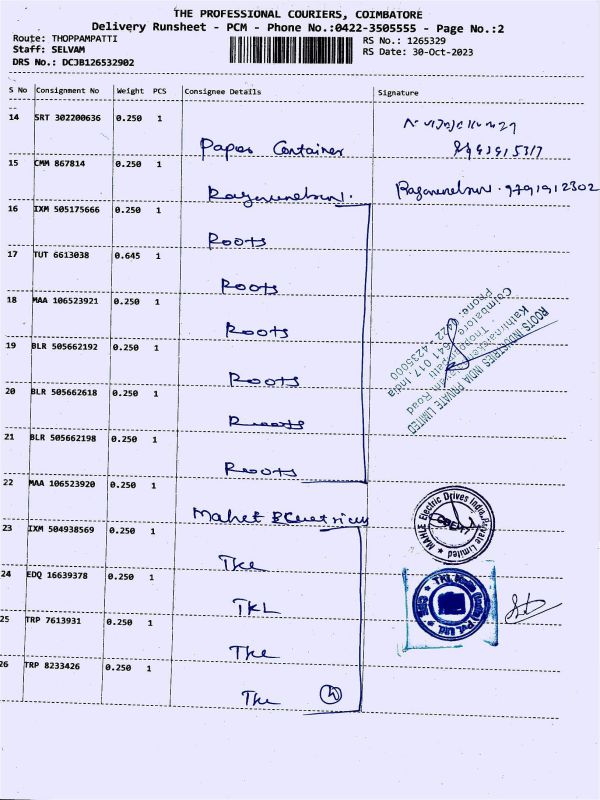 THE PROFESSIONAL COURIERS, COIMBATORE
Delivery Runsheet - PCM - Phone No.:0422-3505555 - Page No.:2
Route: THOPPAMPATTI
RS No.: 1265329
Staff: SELVAM
RS Date: 30-Oct-2023
DRS No.: DCJB126532902
S No Consignment No Weight PCS Consignee Details Signature
14 SRT 302200636 0.250 1
Paper Container
15 CMM 867814 0.250 1
9791912302
16 IXM 505175666 0.250 1
Roots
17 TUT 6613038 0.645 1
Roots
18 MAA 106523921 0.250 1
Roots
19 BLR 505662192 0.250 1
Roots
20 BLR 505662618 0.250 1
Roots
21 BLR 505662198 0.250 1
Roots
ROOTS INDUSTRIES INDIA PRIVATE LIMITED
641 017 India
22 MAA 106523920 0.250 1
MAHLE Electric Drives India Private Limited
23 IXM 504938569 0.250 1
24 EDQ 16639378 0.250 1
TKL
25 TRP 7613931 0.250 1
26 TRP 8233426 0.250 1